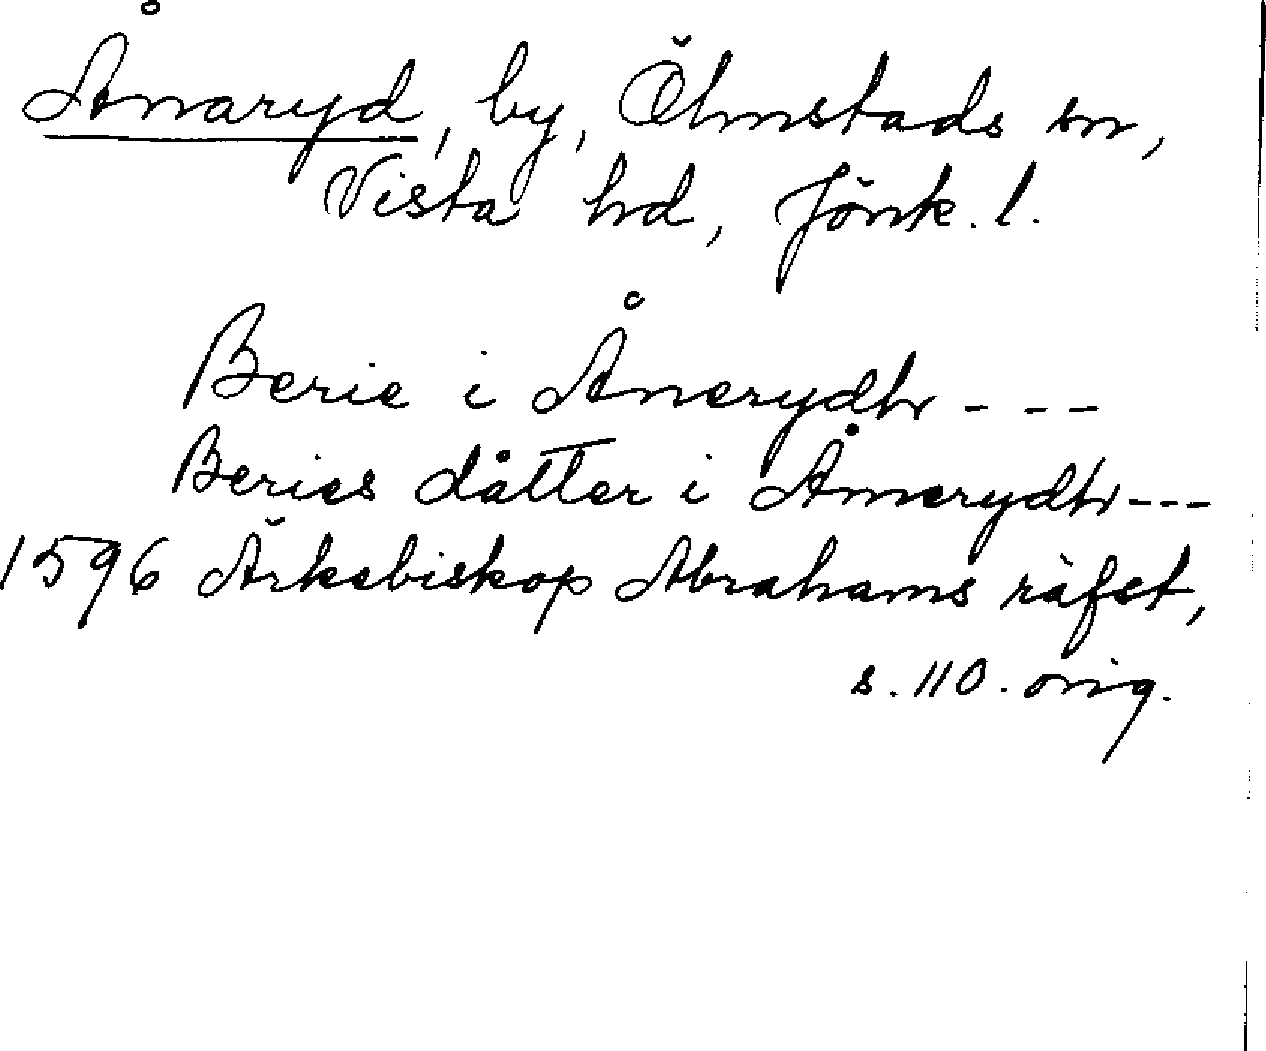 Ånaryd, by, Ölmstads sn,
Vista hd, Jönk. l.
Berie i Ånerydh - - -
Beries dåtter i Åmerydh - - -
1596 Ärkebiskop Abrahams räfst,
s. 110. orig.